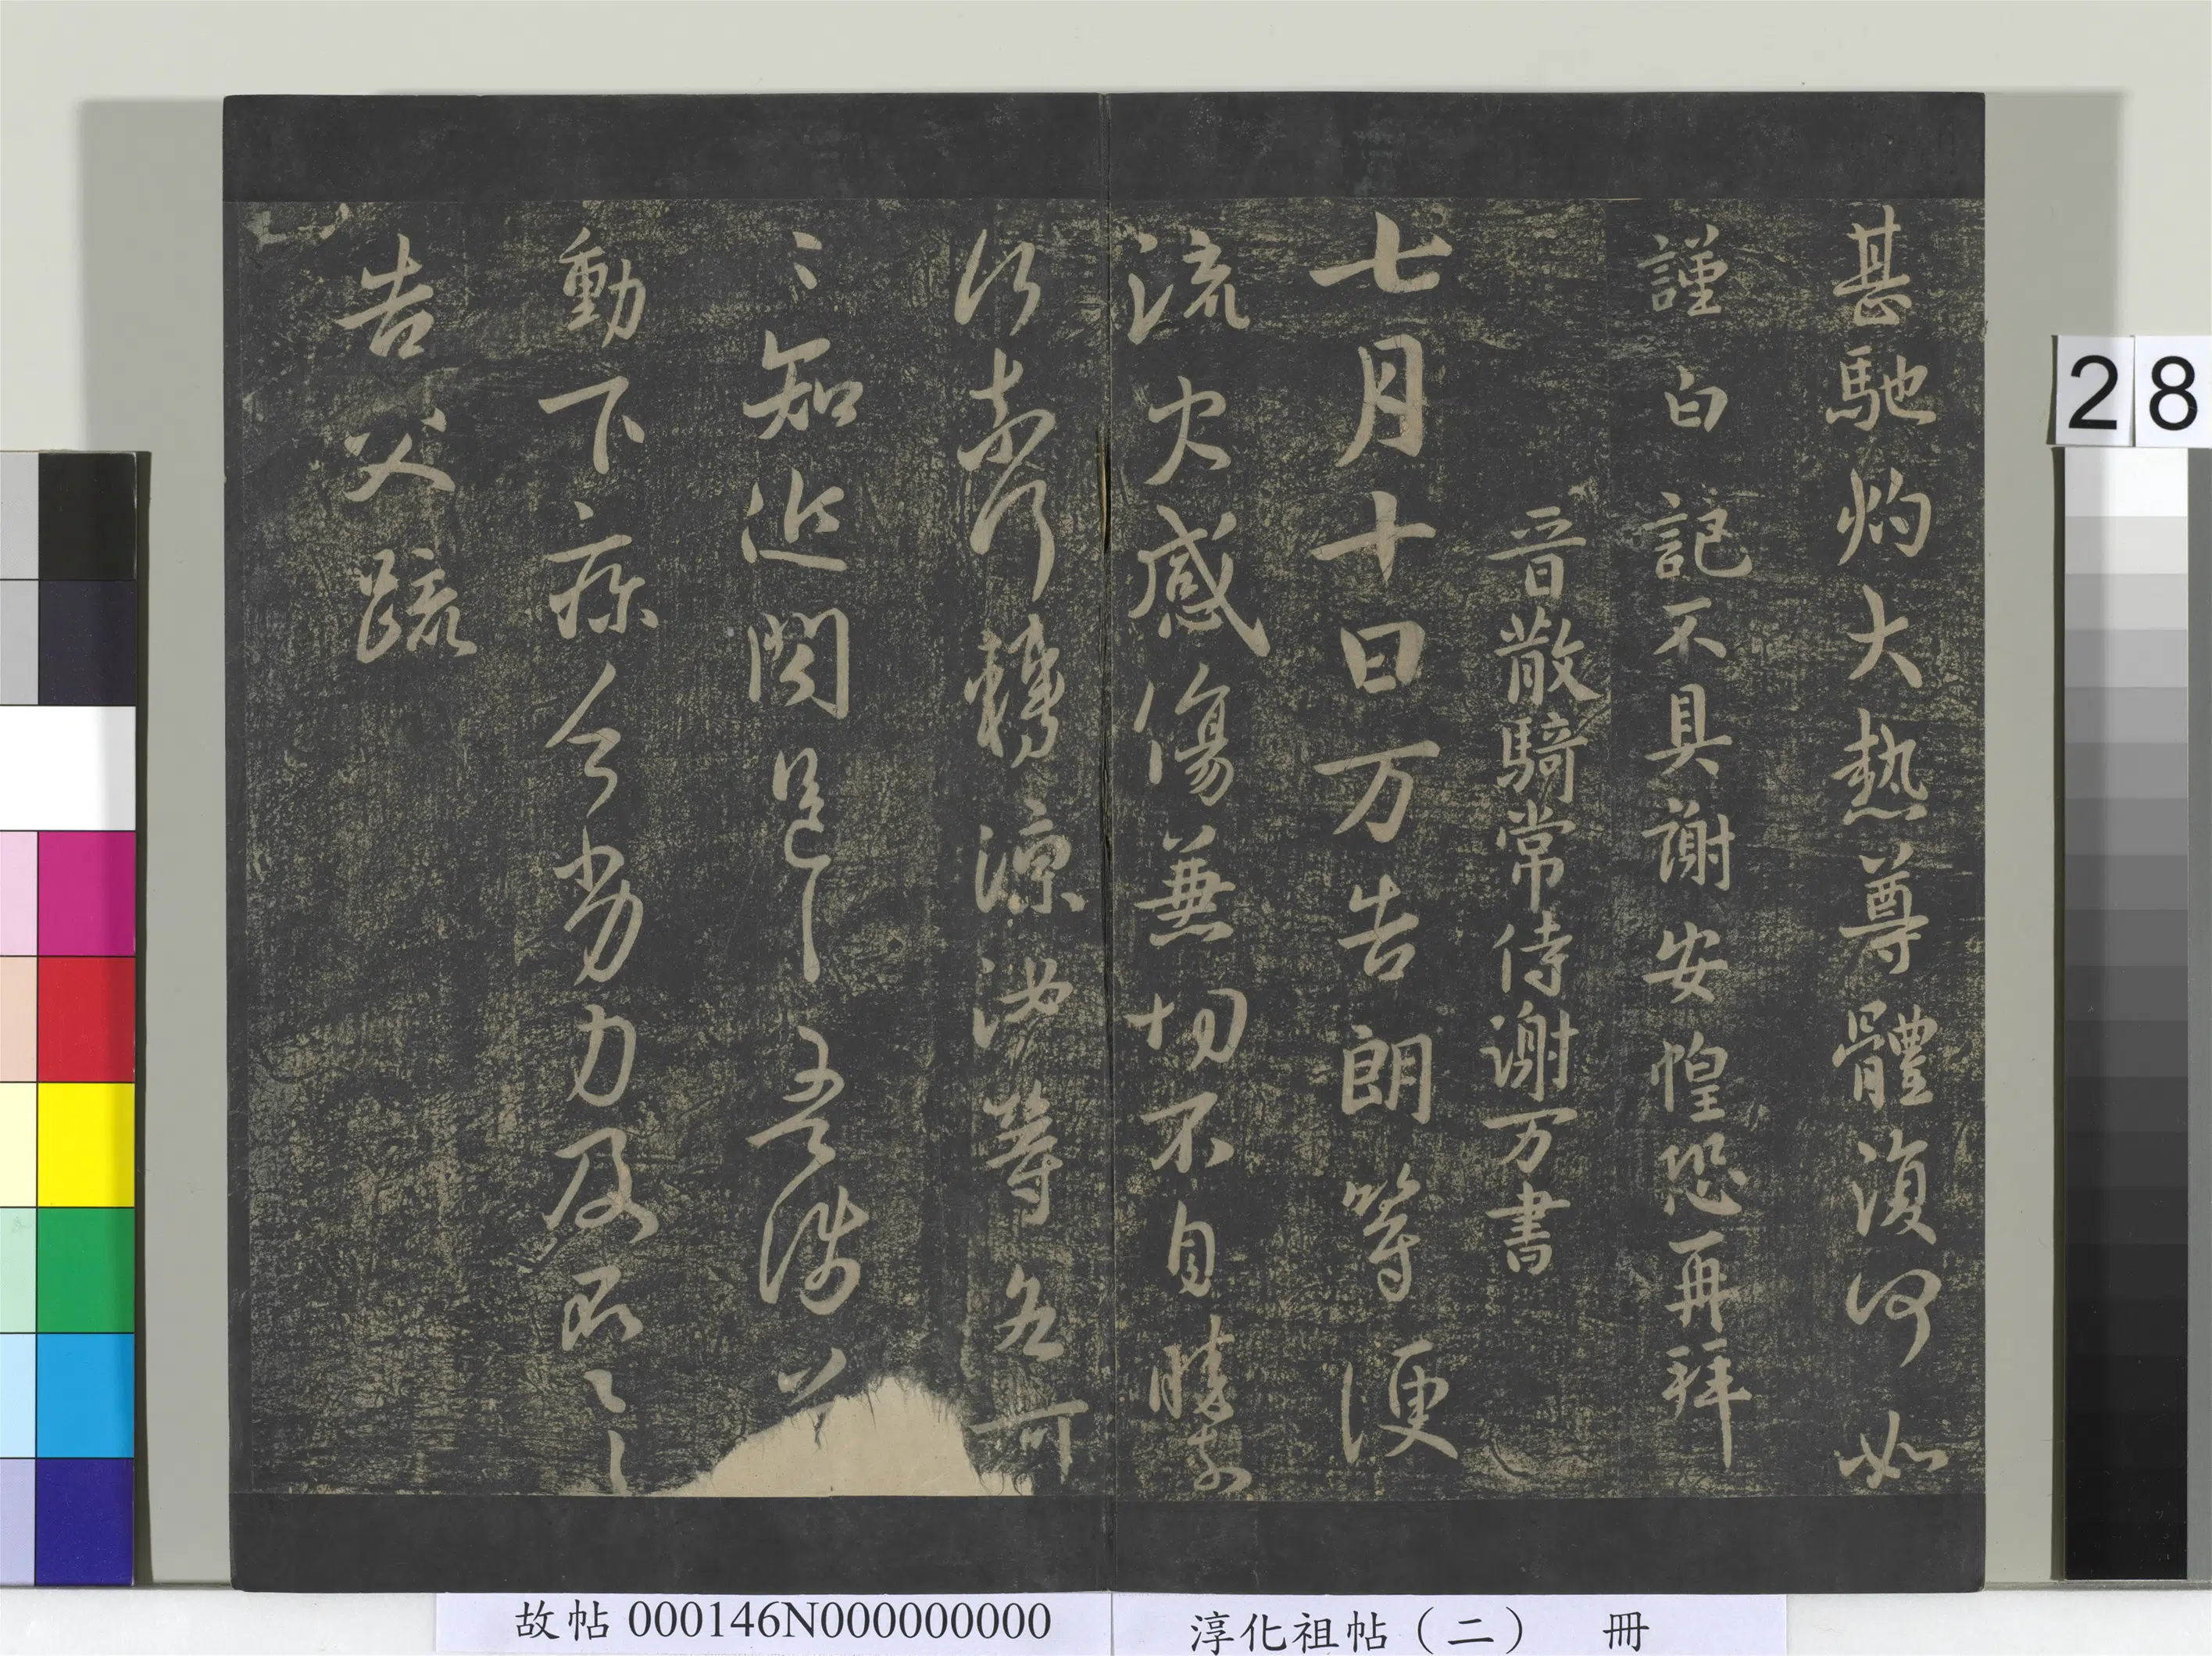 甚馳灼大熱尊體復何如
謹白記不具謝安惶恐再拜
晉散騎常侍謝万書
七月十日万告朗等便
流火感傷兼切不自勝奈
何奈何轉涼汝等各可
〻知近聞邑邑吾涉道
動下疾今劣力及不〻一一
告父疏
28
故帖000146N000000000
淳化祖帖（二） 冊